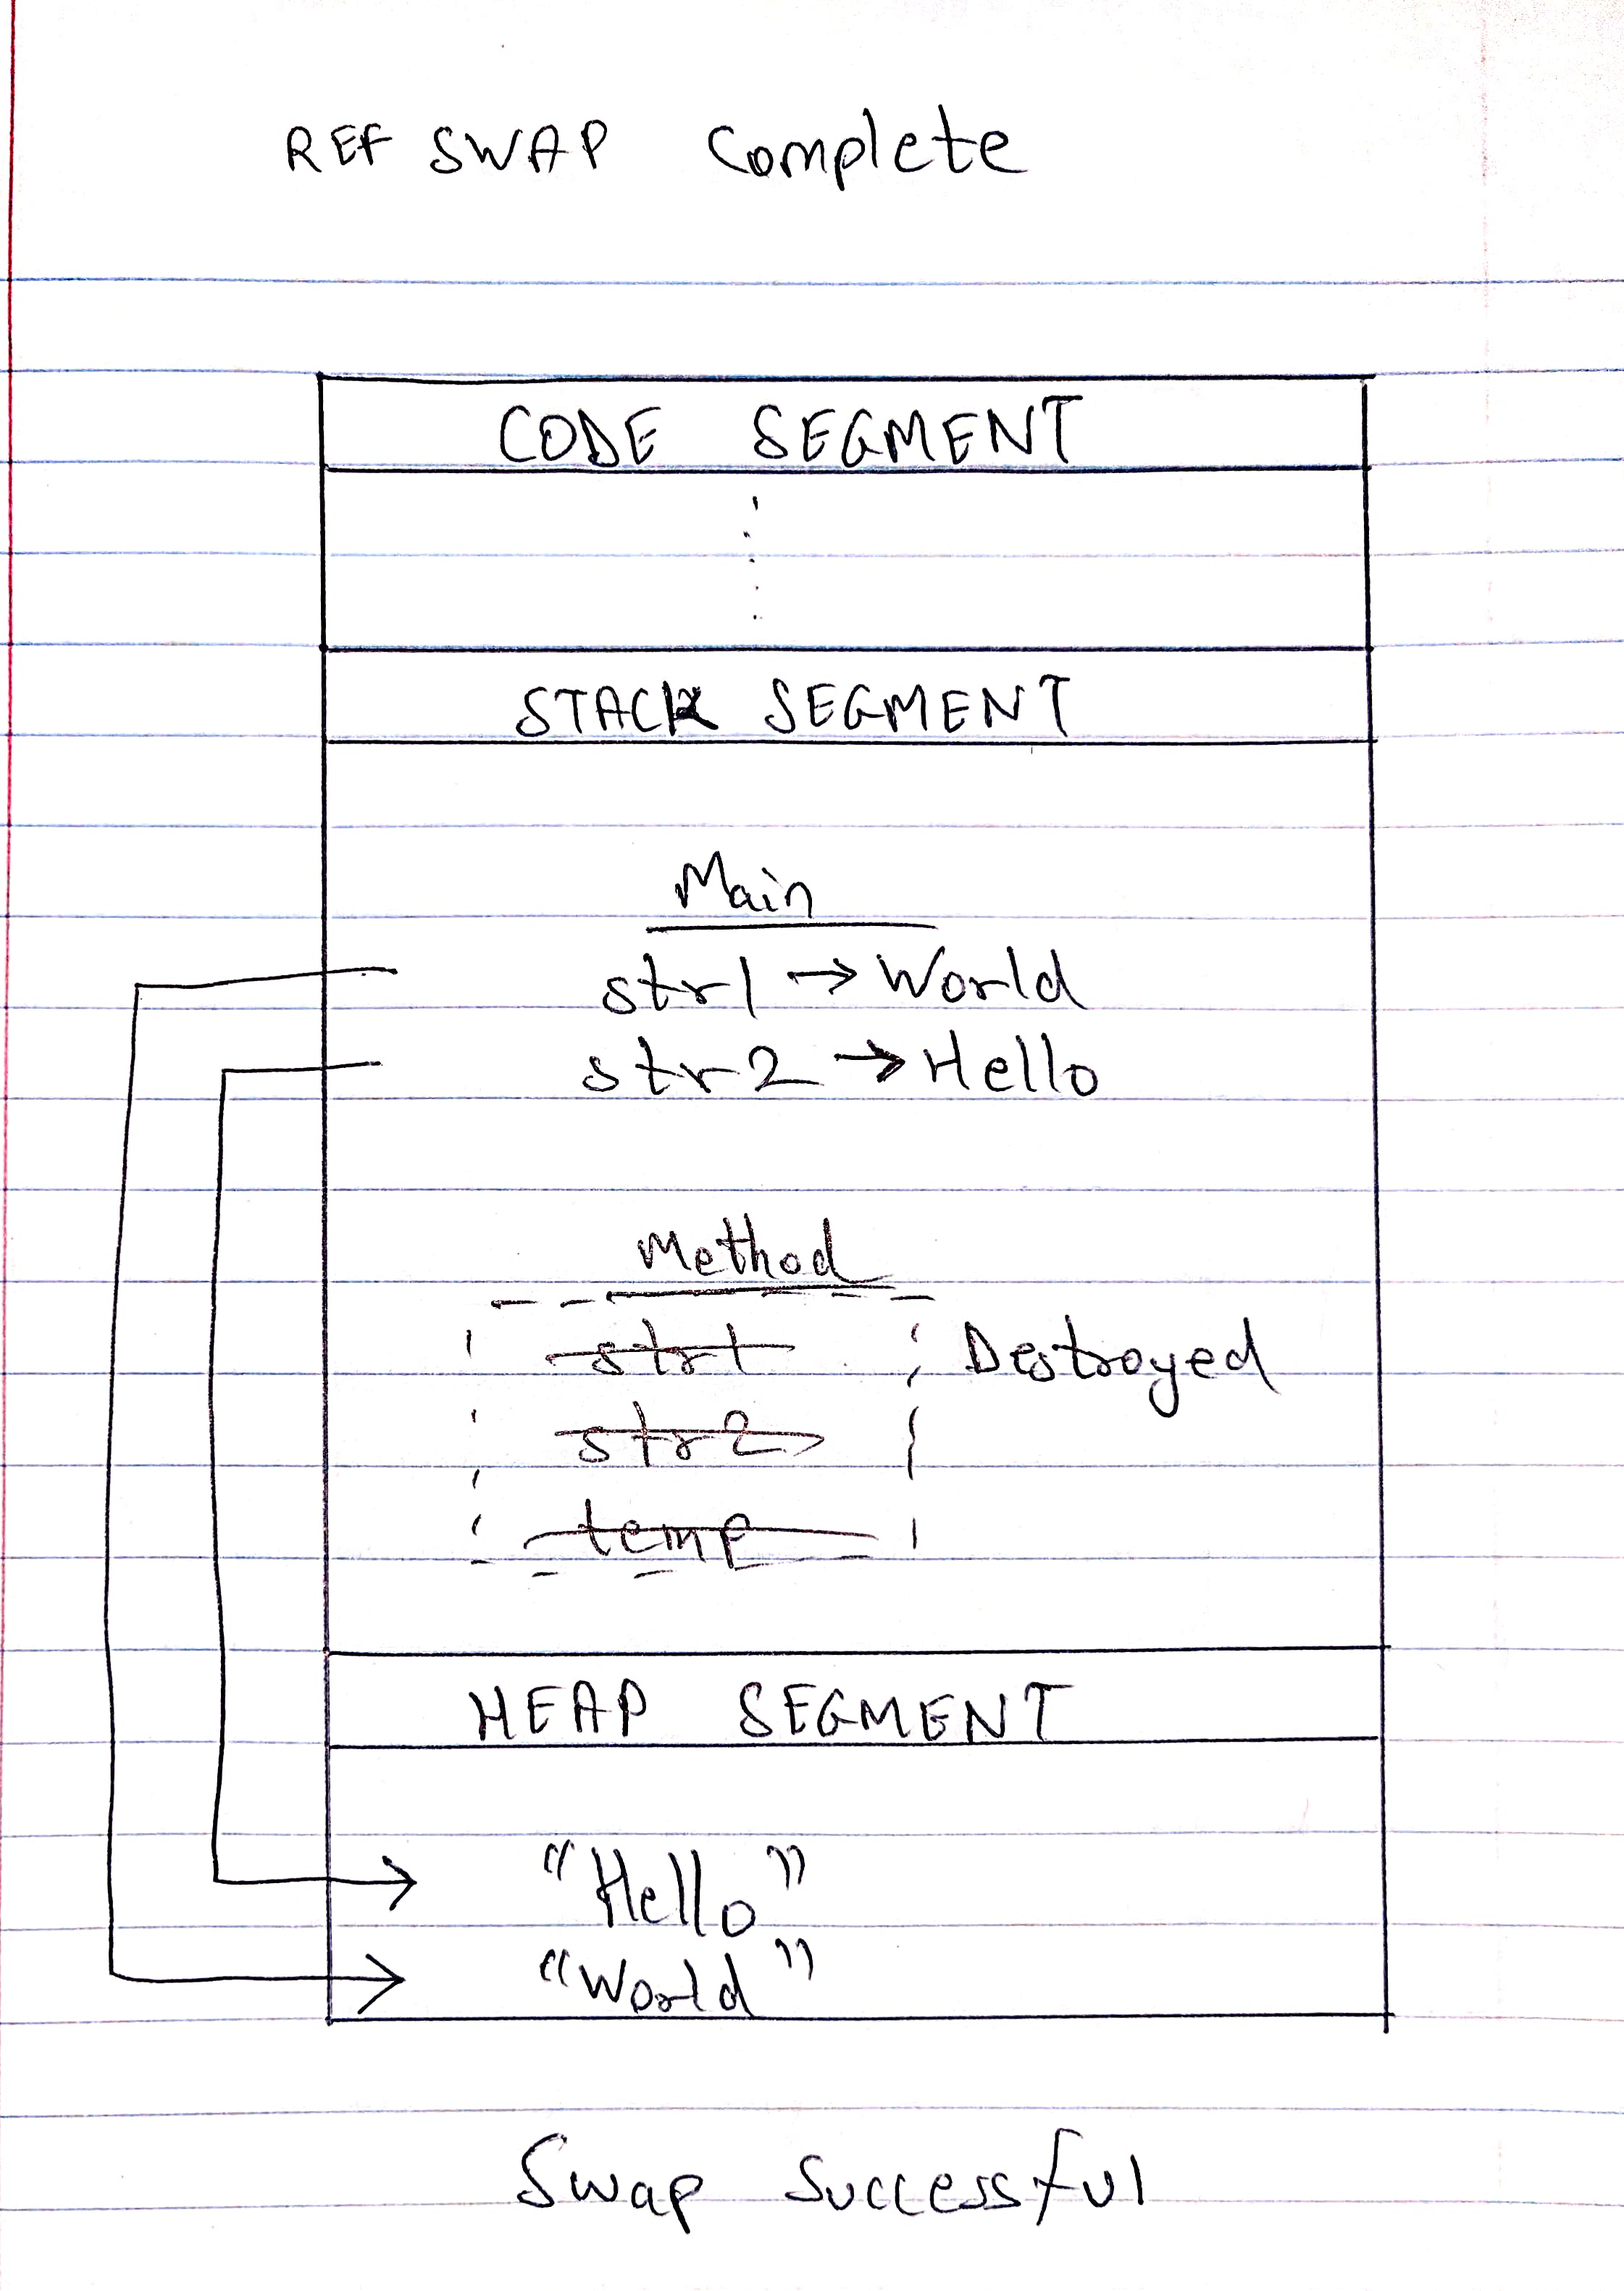 REF SWAP Complete
CODE SEGMENT
STACK SEGMENT
Main
str1 → World
str2 → Hello
Method
str1 Destroyed
str2
temp
HEAP SEGMENT
"Hello"
"World"
Swap Successful